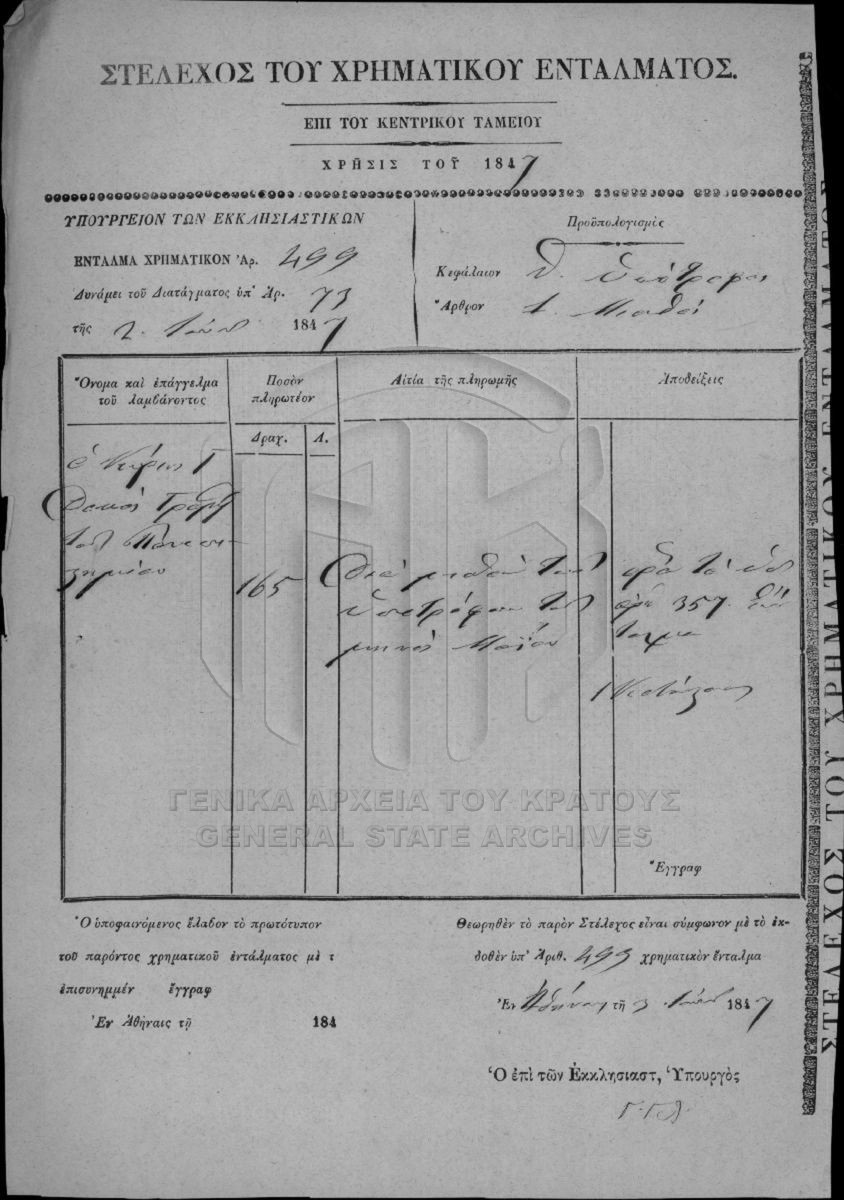 ΣΤΕΛΕΧΟΣ ΤΟΥ ΧΡΗΜΑΤΙΚΟΥ ΕΝΤΑΛΜΑΤΟΣ.
ΕΠΙ ΤΟΥ ΚΕΝΤΡΙΚΟΥ ΤΑΜΕΙΟΥ
ΧΡΗΣΙΣ ΤΟΥ 1847
ΥΠΟΥΡΓΕΙΟΝ ΤΩΝ ΕΚΚΛΗΣΙΑΣΤΙΚΩΝ
ΕΝΤΑΛΜΑ ΧΡΗΜΑΤΙΚΟΝ Ἀρ. 499
Δυνάμει τοῦ Διατάγματος ὑπ' Ἀρ. 73
τῆς 2 1847
Προϋπολογισμὸς
Κεφάλαιον Θ. Ὑπότροφοι
Ἄρθρον 1. Μισθοὶ
Ὄνομα καὶ ἐπάγγελμα
τοῦ λαμβάνοντος
Ποσὸν
πληρωτέον
Δραχ. Λ.
Αἰτία τῆς πληρωμῆς
Ἀποδείξεις
ὁ Κύριος Γ
τοῦ Πανεπι-
στημίου
165
Διὰ μισθὸν τῶν
ὑποτρόφων τοῦ
μηνὸς Μαΐου
357
Ἔγγραφ
ΓΕΝΙΚΑ ΑΡΧΕΙΑ ΤΟΥ ΚΡΑΤΟΥΣ
GENERAL STATE ARCHIVES
Ὁ ὑποφαινόμενος ἔλαβον τὸ πρωτότυπον
τοῦ παρόντος χρηματικοῦ ἐντάλματος μὲ τ
ἐπισυνημμέν ἔγγραφ
Ἐν Ἀθήναις τῇ 184
Θεωρηθὲν τὸ παρὸν Στέλεχος εἶναι σύμφωνον μὲ τὸ ἐκ-
δοθὲν ὑπ' Ἀριθ. 499 χρηματικὸν ἔνταλμα
Ἐν Ἀθήναις τῇ 3 1847
Ὁ ἐπὶ τῶν Ἐκκλησιαστ, Ὑπουργὸς
ΣΤΕΛΕΧΟΣ ΤΟΥ ΧΡΗΜΑΤΙΚΟΥ ΕΝΤΑΛΜΑΤΟΣ